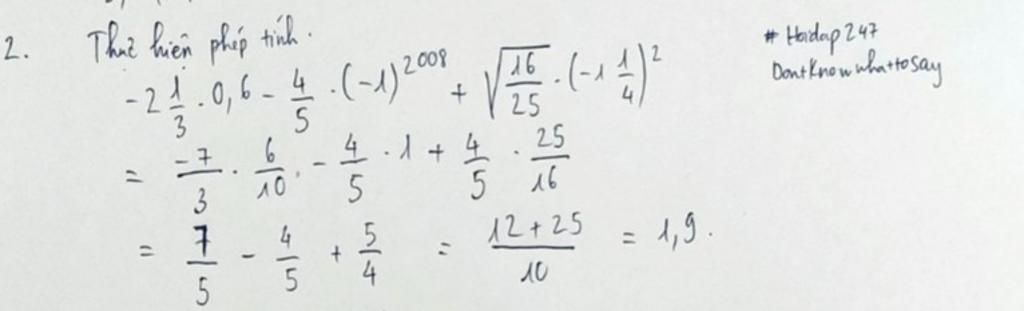 2. Thực hiện phép tính.
-2 1/3 . 0,6 - 4/5 . (-1)^2008 + √(16/25) . (-1 1/4)^2
= -7/3 . 6/10 . - 4/5 . 1 + 4/5 . 25/16
= 7/5 - 4/5 + 5/4 = (12 + 25)/10 = 1,9.
# Hoidap247
DontKnowwhattosay